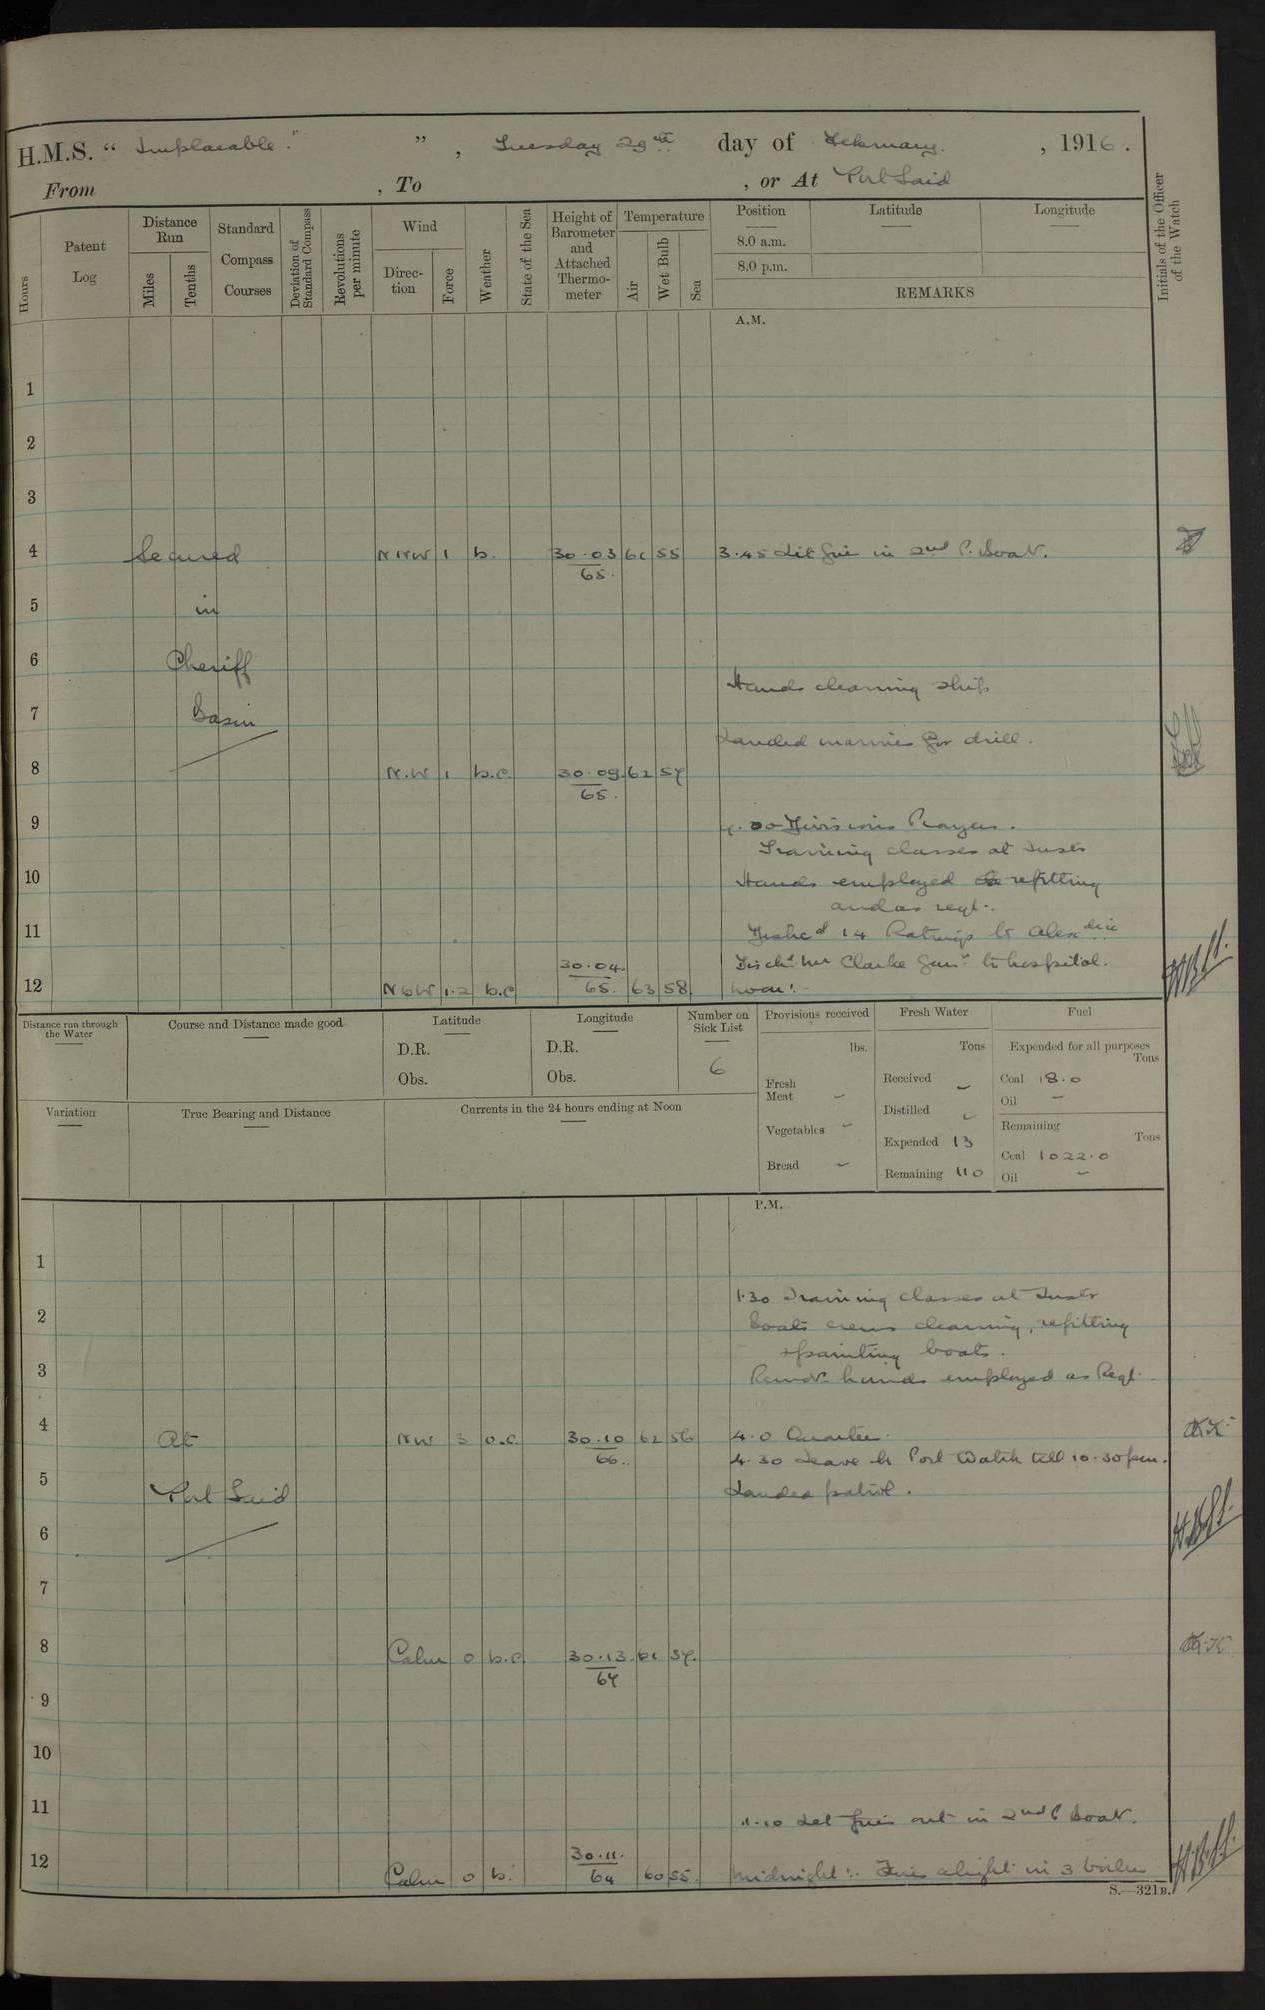 H.M.S. “ Implacable. ” , Tuesday 29th day of February. , 1916.
From , To , or At Port Said
Hours
Patent Log
Distance Run
Miles
Tenths
Standard Compass Courses
Deviation of Standard Compass
Revolutions per minute
Wind
Direction
Force
Weather
State of the Sea
Height of Barometer and Attached Thermometer
Temperature
Air
Wet Bulb
Sea
Position
8.0 a.m.
8.0 p.m.
Latitude
Longitude
REMARKS
Initials of the Officer of the Watch
A.M.
1
2
3
4 Secured NNW 1 b. 30.03 61 55 3.45 Lit fire in 2nd P. Boat.
65.
5 in
6 Cheriff
Hands cleaning ship
7 Basin
Landed marines for drill.
8 N.W 1 b.c. 30.09 62 57
65.
9 Divisions Prayers.
Training classes at Insts
10 Hands employed refitting
and as reqt.
11 14 Ratings to Alexdria
30.04. Disch'd Mr Clarke Gunr to hospital.
12 NbW 1.2 b.c 65. 63 58. Noon:
Distance run through the Water
Course and Distance made good
Latitude
D.R.
Obs.
Longitude
D.R.
Obs.
Number on Sick List
6
Provisions received
lbs.
Fresh Meat –
Vegetables –
Bread –
Fresh Water
Tons
Received –
Distilled –
Expended 13
Remaining 110
Fuel
Expended for all purposes
Tons
Coal 18.0
Oil –
Remaining
Tons
Coal 1022.0
Oil –
Variation
True Bearing and Distance
Currents in the 24 hours ending at Noon
P.M.
1
1.30 Training classes at Insts
2 Boats crews cleaning, refitting
& painting boats.
3 Remdr hands employed as Reqt.
4 At NW 3 o.c. 30.10 62 56 4.0 Quarters.
66. 4.30 Leave to Port Watch till 10.30pm.
5 Port Said Landed patrol.
6
7
8 Calm 0 b.c. 30.13 61 57.
64
9
10
11
11.10 Let fires out in 2nd P Boat.
12 30.11.
Calm 0 b. 64 60 55. Midnight: Fires alight in 3 boilers
H.B.
S.—321B.